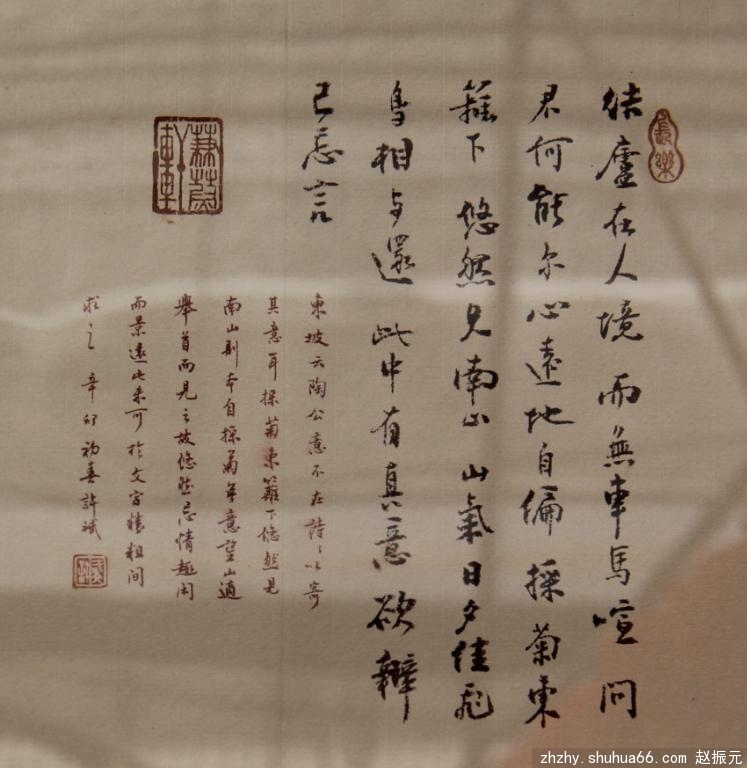 長樂
結廬在人境而無車馬喧問
君何能尔心遠地自偏採菊東
籬下悠然見南山山氣日夕佳飛
鳥相与還此中有真意欲辨
已忘言
東坡云陶公意不在詩〻以寄
其意耳採菊東籬下悠然見
南山則本自採菊無意望山適
舉首而見之故悠然忘情趣閑
而景遠此未可於文字精粗間
求之辛卯初春許
zhzhy.shuhua66.com 赵振元